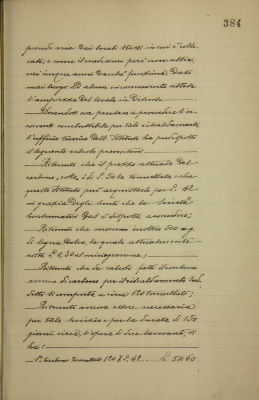 384
prende aria dai locali stessi in cui è collo-
cato, e come il medesimo però non abbia
nei cinque anni dacchè funziona dato
mai luogo ad alcun inconveniente attesa
l'ampiezza del locale in
Dovendosi ora pensare a provvedere l'oc-
corrente combustibile per tale riscaldamento,
l'ufficio tecnico dell'Istituto ha predisposto
il seguente calcolo preventivo
Ritenuto che il prezzo attuale del
carbone, coke, è di L. la tonnellata e che
questo Istituto può acquistarlo per L. 42
in grazia degli sconti che la Società
Consumatori Gas è disposta a concedere;
Ritenuto che occorrono inoltre 500 kg
di legna dolce, la quale attualmente
costa L. 0,30 al miriagramma;
Ritenuto che da calcoli fatti il consumo
di carbone per il riscaldamento sud-
detto si computa a circa 120 tonnellate;
Ritenuto ancora essere necessaria
per tale servizio e per la durata di 150
giorni circa, l'opera di due lavoranti, si
ha:
Carbone tonnellate 120 X L. 42 .... L. 5040